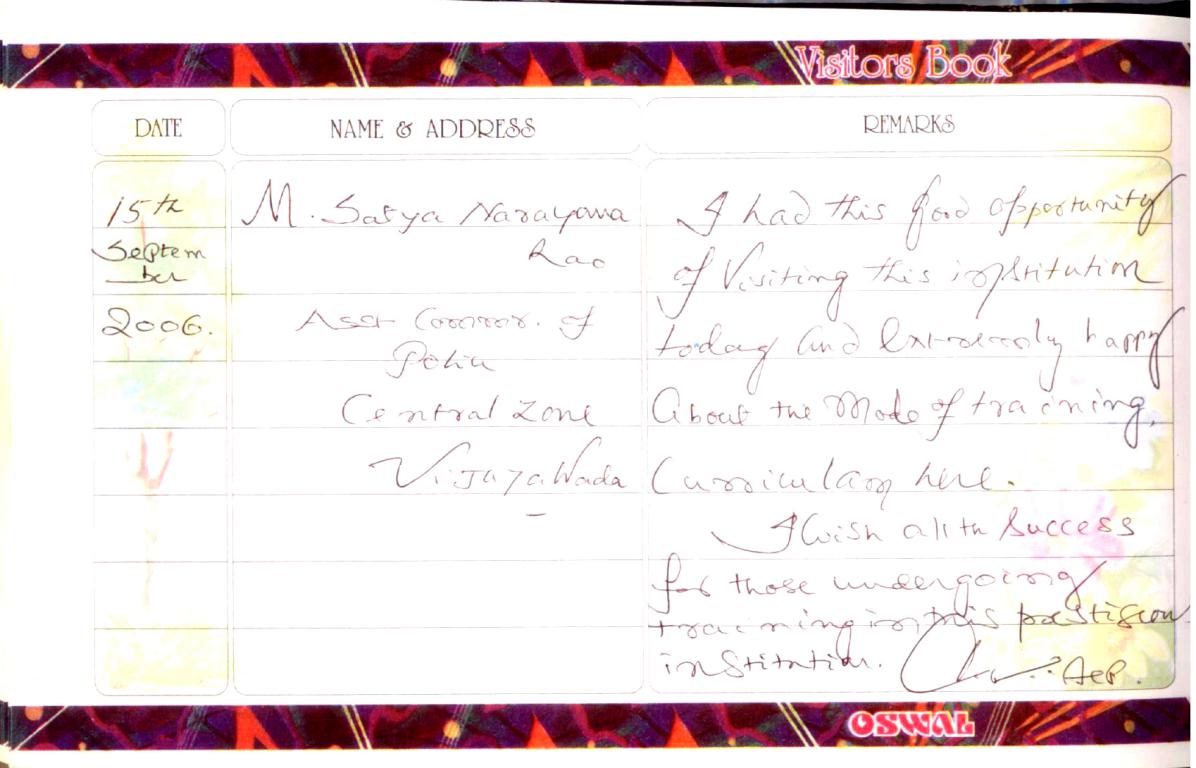 Visitors Book
DATE
NAME & ADDRESS
REMARKS
15th
Septem
ber
2006.
M. Satya Narayana
Rao
Asst Commr. of
Police
Central Zone
Vijayawada
I had this good opportunity
of Visiting this institution
today and Extremely happy
About the Mode of training,
Curriculam here.
I Wish all the Success
for those undergoing
training in this prestigeou
institution.
ACP.
OSWAL